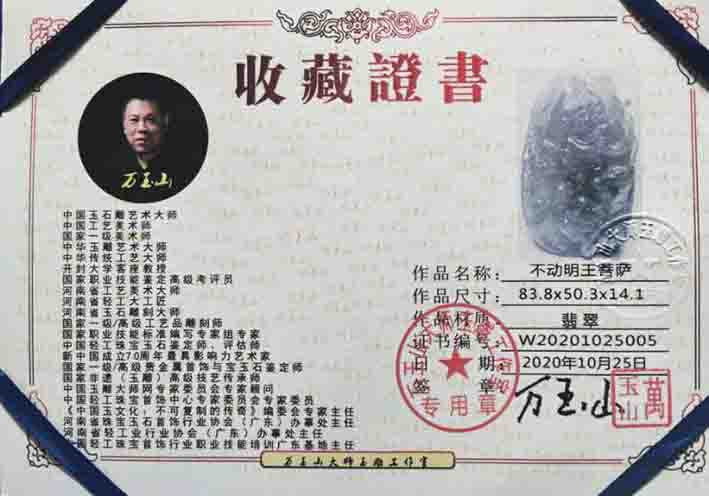 收藏證書
万玉山
中国玉石雕艺术大师
中国工艺美术师
国家一级美术师
中华玉雕艺术大师
中华传统工艺大师
开封大学客座教授
国家职业技能鉴定高级考评员
河南省工艺美术大师
河南省轻工大工匠
河南省玉石雕刻大师
国家一级/高级工艺品雕刻师
国家职业技能标准编写专家组专家
中国轻工珠宝玉石鉴定师、评估师
新中国成立70周年最具影响力艺术家
国家一级/高级贵金属首饰与宝玉石鉴定师
国家非遗（玉雕）高级技艺传承师
中国玉雕大师网专家委员会专家顾问
中国轻工珠宝首饰中心专家委员会专家委员
《中国玉文化：不可复制的传奇》编委会专家主任
河南省珠宝玉石首饰行业协会（广东）办事处主任
河南省轻工业行业协会（广东）办事处主任
国轻工珠宝首饰行业职业技能培训广东基地主任
作品名称：不动明王菩萨
作品尺寸：83.8x50.3x14.1
作品材质：翡翠
证书编号：W20201025005
日期：2020年10月25日
签章：万玉山
萬玉山
专用章
万玉山大师玉雕工作室